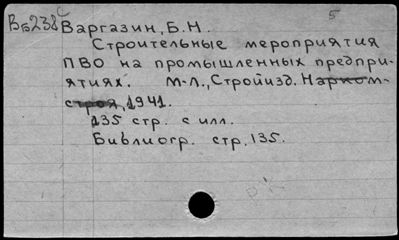 5
Вб238 Варгазин, Б.Н.
Строительные мероприятия
ПВО на промышленных предпри-
ятиях. М-Л., Стройизд. Нарком-
строя, 1941.
135 стр. с илл.
Библиогр. стр. 135.